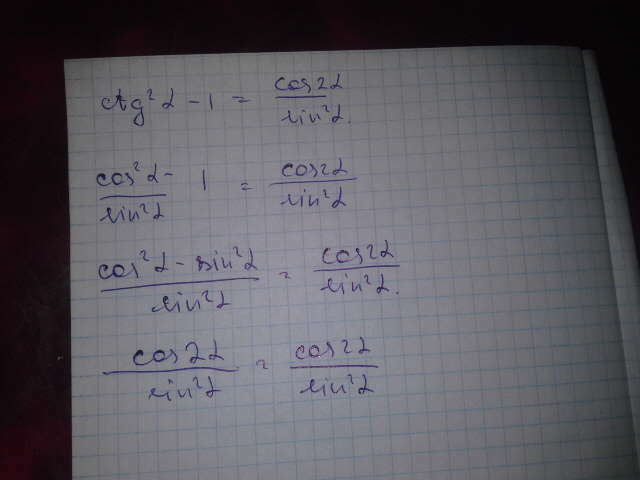 ctg²α - 1 = cos2α/sin²α.
cos²α/sin²α - 1 = cos2α/sin²α
(cos²α - sin²α)/sin²α = cos2α/sin²α.
cos2α/sin²α = cos2α/sin²α